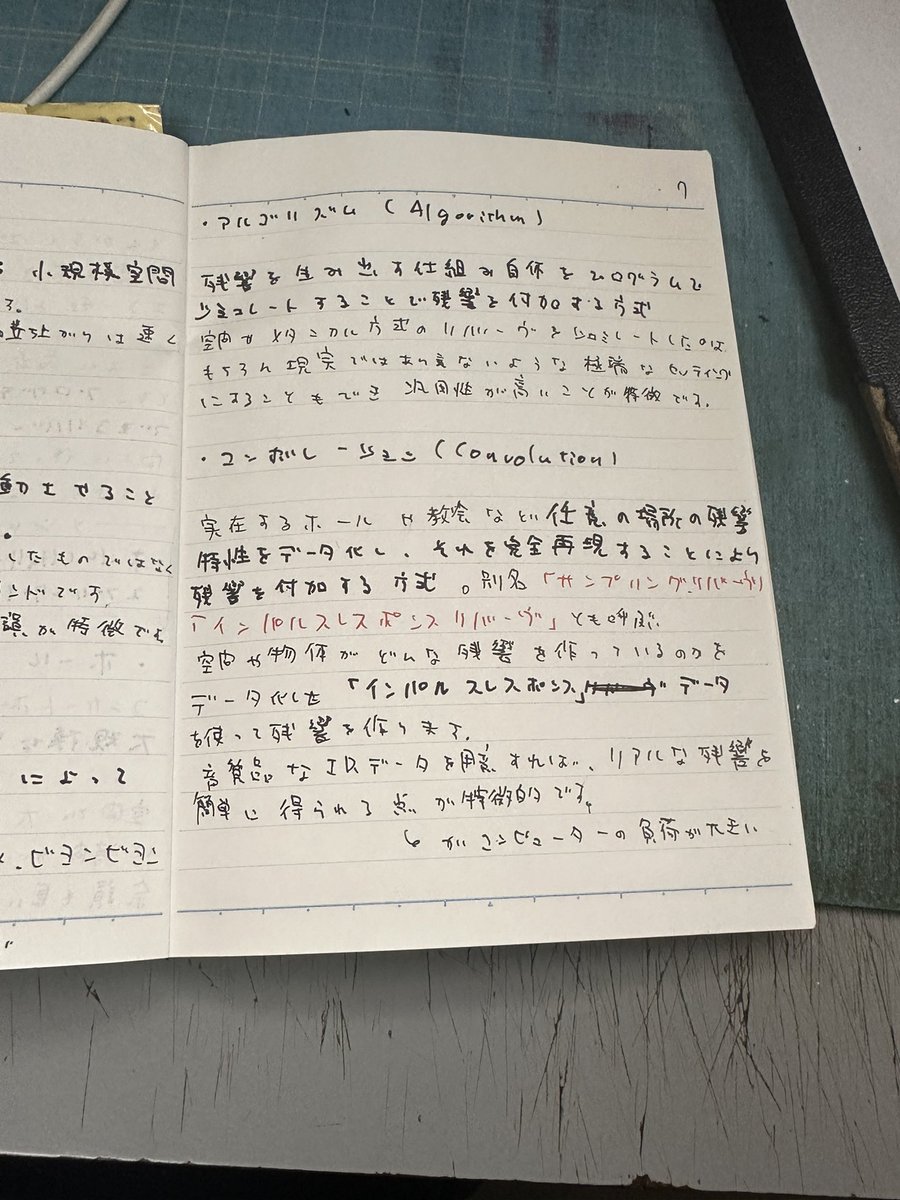 小規模空間
る。
は速く
動させること
。
したものではなく
ンドです。
が特徴です
によって
7
・アルゴリズム (Algorithm)
残響を生み出す仕組み自体をプログラムで
シミュレートすることで残響を付加する方式
空間やメカニカル方式のリバーヴをシミュレートしたのは
もちろん現実ではあり得ないような極端なセッティング
にすることもでき 汎用性が高いことが特徴です。
・コンボレーション (Convolution)
実在するホールや教会など任意の場所の残響
特性をデータ化し、それを完全再現することにより
残響を付加する方式。別名「サンプリングリバーヴ」
「インパルスレスポンスリバーヴ」とも呼ぶ
空間や物体がどんな残響を作っているのかを
データ化した「インパルスレスポンス」データ
を使って残響を作ります。
なIRデータを用意すれば、リアルな残響を
簡単に得られる点が特徴的です。
↳ がコンピューターの負荷が大きい